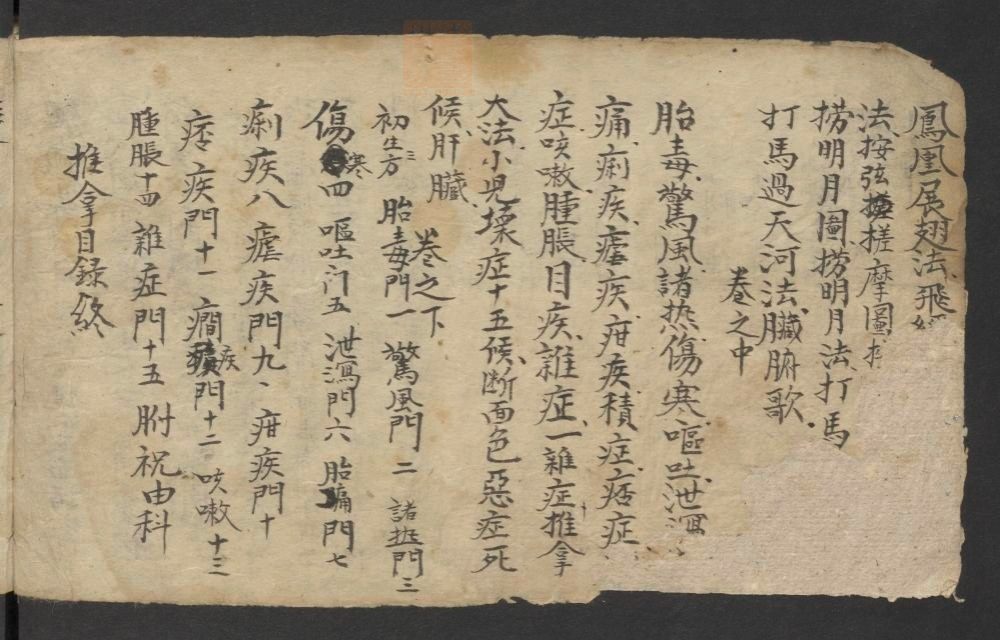 鳳凰展翅法飛經
法按弦搓摩圖
捞明月圖捞明月法打馬
打馬過天河法臟腑歌
卷之中
胎毒驚風諸热傷寒嘔吐泄瀉
痛痢疾瘧疾疳疾積症痞症
症咳嗽腫脹目疾雜症一雜症推拿
大法小児壊症十五候断面色惡症死
候肝臓
卷之下
初生方三 胎毒門一 驚風門二 諸热門三
傷寒四 嘔吐门五 泄瀉門六 胎痛門七
痢疾八 瘧疾門九 疳疾門十
疾門十一 癇疾門十二 咳嗽十三
腫脹十四 雜症門十五 附祝由科
推拿目録終